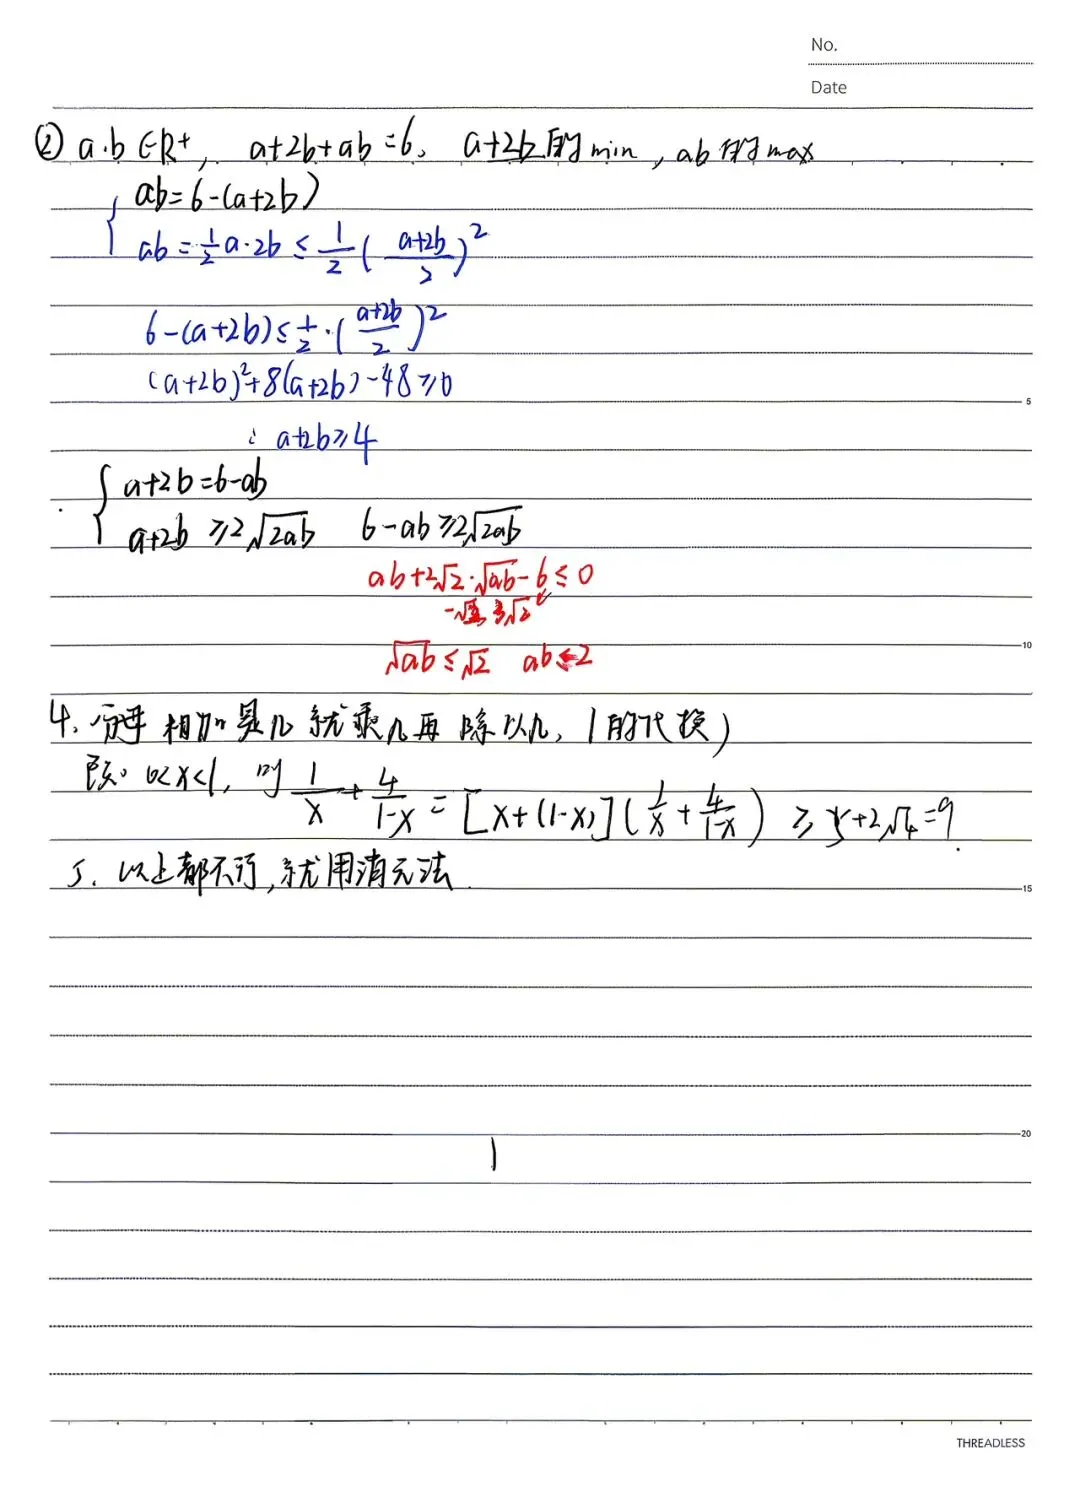 No.
Date
② a·b∈R⁺, a+2b+ab=6。 a+2b的min, ab的max
ab=6-(a+2b)
ab=½a·2b≤½((a+2b)/2)²
6-(a+2b)≤½·((a+2b)/2)²
(a+2b)²+8(a+2b)-48≥0
∴ a+2b≥4
5
a+2b=6-ab
a+2b≥2√(2ab)  6-ab≥2√(2ab)
ab+2√2·√ab-6≤0
-√2 3√2
√ab≤√2  ab≤2
10
4. 相加是几就乘几再除以几, 1的代换)
0<x<1, 则 1/x+4/(1-x)=[x+(1-x)](1/x+4/(1-x))≥5+2√4=9.
5. 以上都不行,就用消元法.
15
20
1
THREADLESS